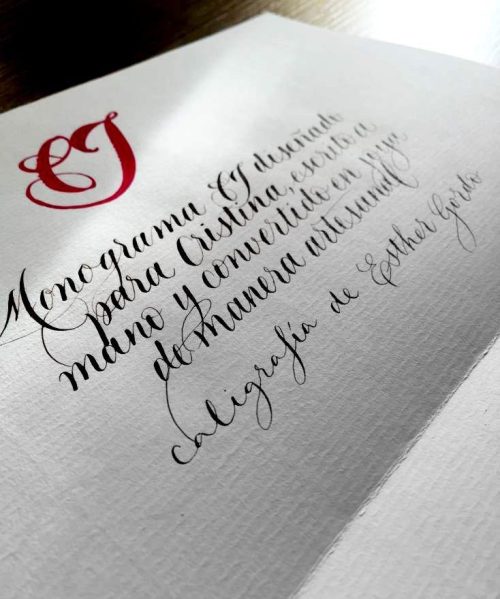 CJ
Monograma CJ diseñado
para Cristina, escrito a
mano y convertido en joya
de manera artesanal
caligrafía de Esther Gordo